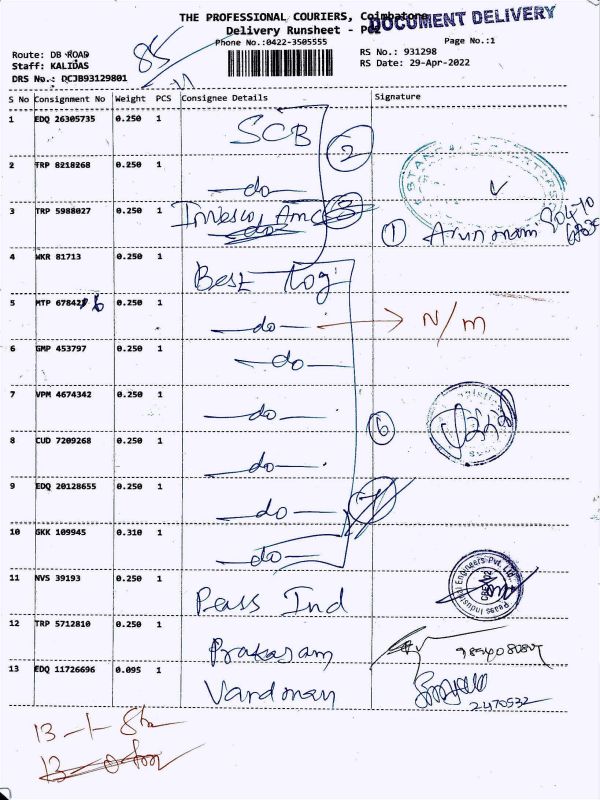 THE PROFESSIONAL COURIERS, Coimbatore
DOCUMENT DELIVERY
Delivery Runsheet - POD
Phone No.:0422-3505555
Page No.:1
Route: DB ROAD
Staff: KALIDAS
DRS No.: DCJB93129801
85
RS No.: 931298
RS Date: 29-Apr-2022
S No Consignment No Weight PCS Consignee Details Signature
1 EDQ 26305735 0.250 1 SCB
2
2 TRP 8218268 0.250 1 —do—
3 TRP 5988027 0.250 1 Invesco, Amc
1 Arun mani
4 WKR 81713 0.250 1 Best Logi
5 MTP 67842 6 0.250 1 —do— N/m
6 GMP 453797 0.250 1 —do—
7 VPM 4674342 0.250 1 —do—
6
8 CUD 7209268 0.250 1 —do—
9 EDQ 20128655 0.250 1 —do—
10 GKK 109945 0.310 1 —do—
11 NVS 39193 0.250 1 Peass Ind
Peass Industrial Engineers Pvt. Ltd
12 TRP 5712810 0.250 1 Prakasam
13 EDQ 11726696 0.095 1 Vardman
2470532
13-1-